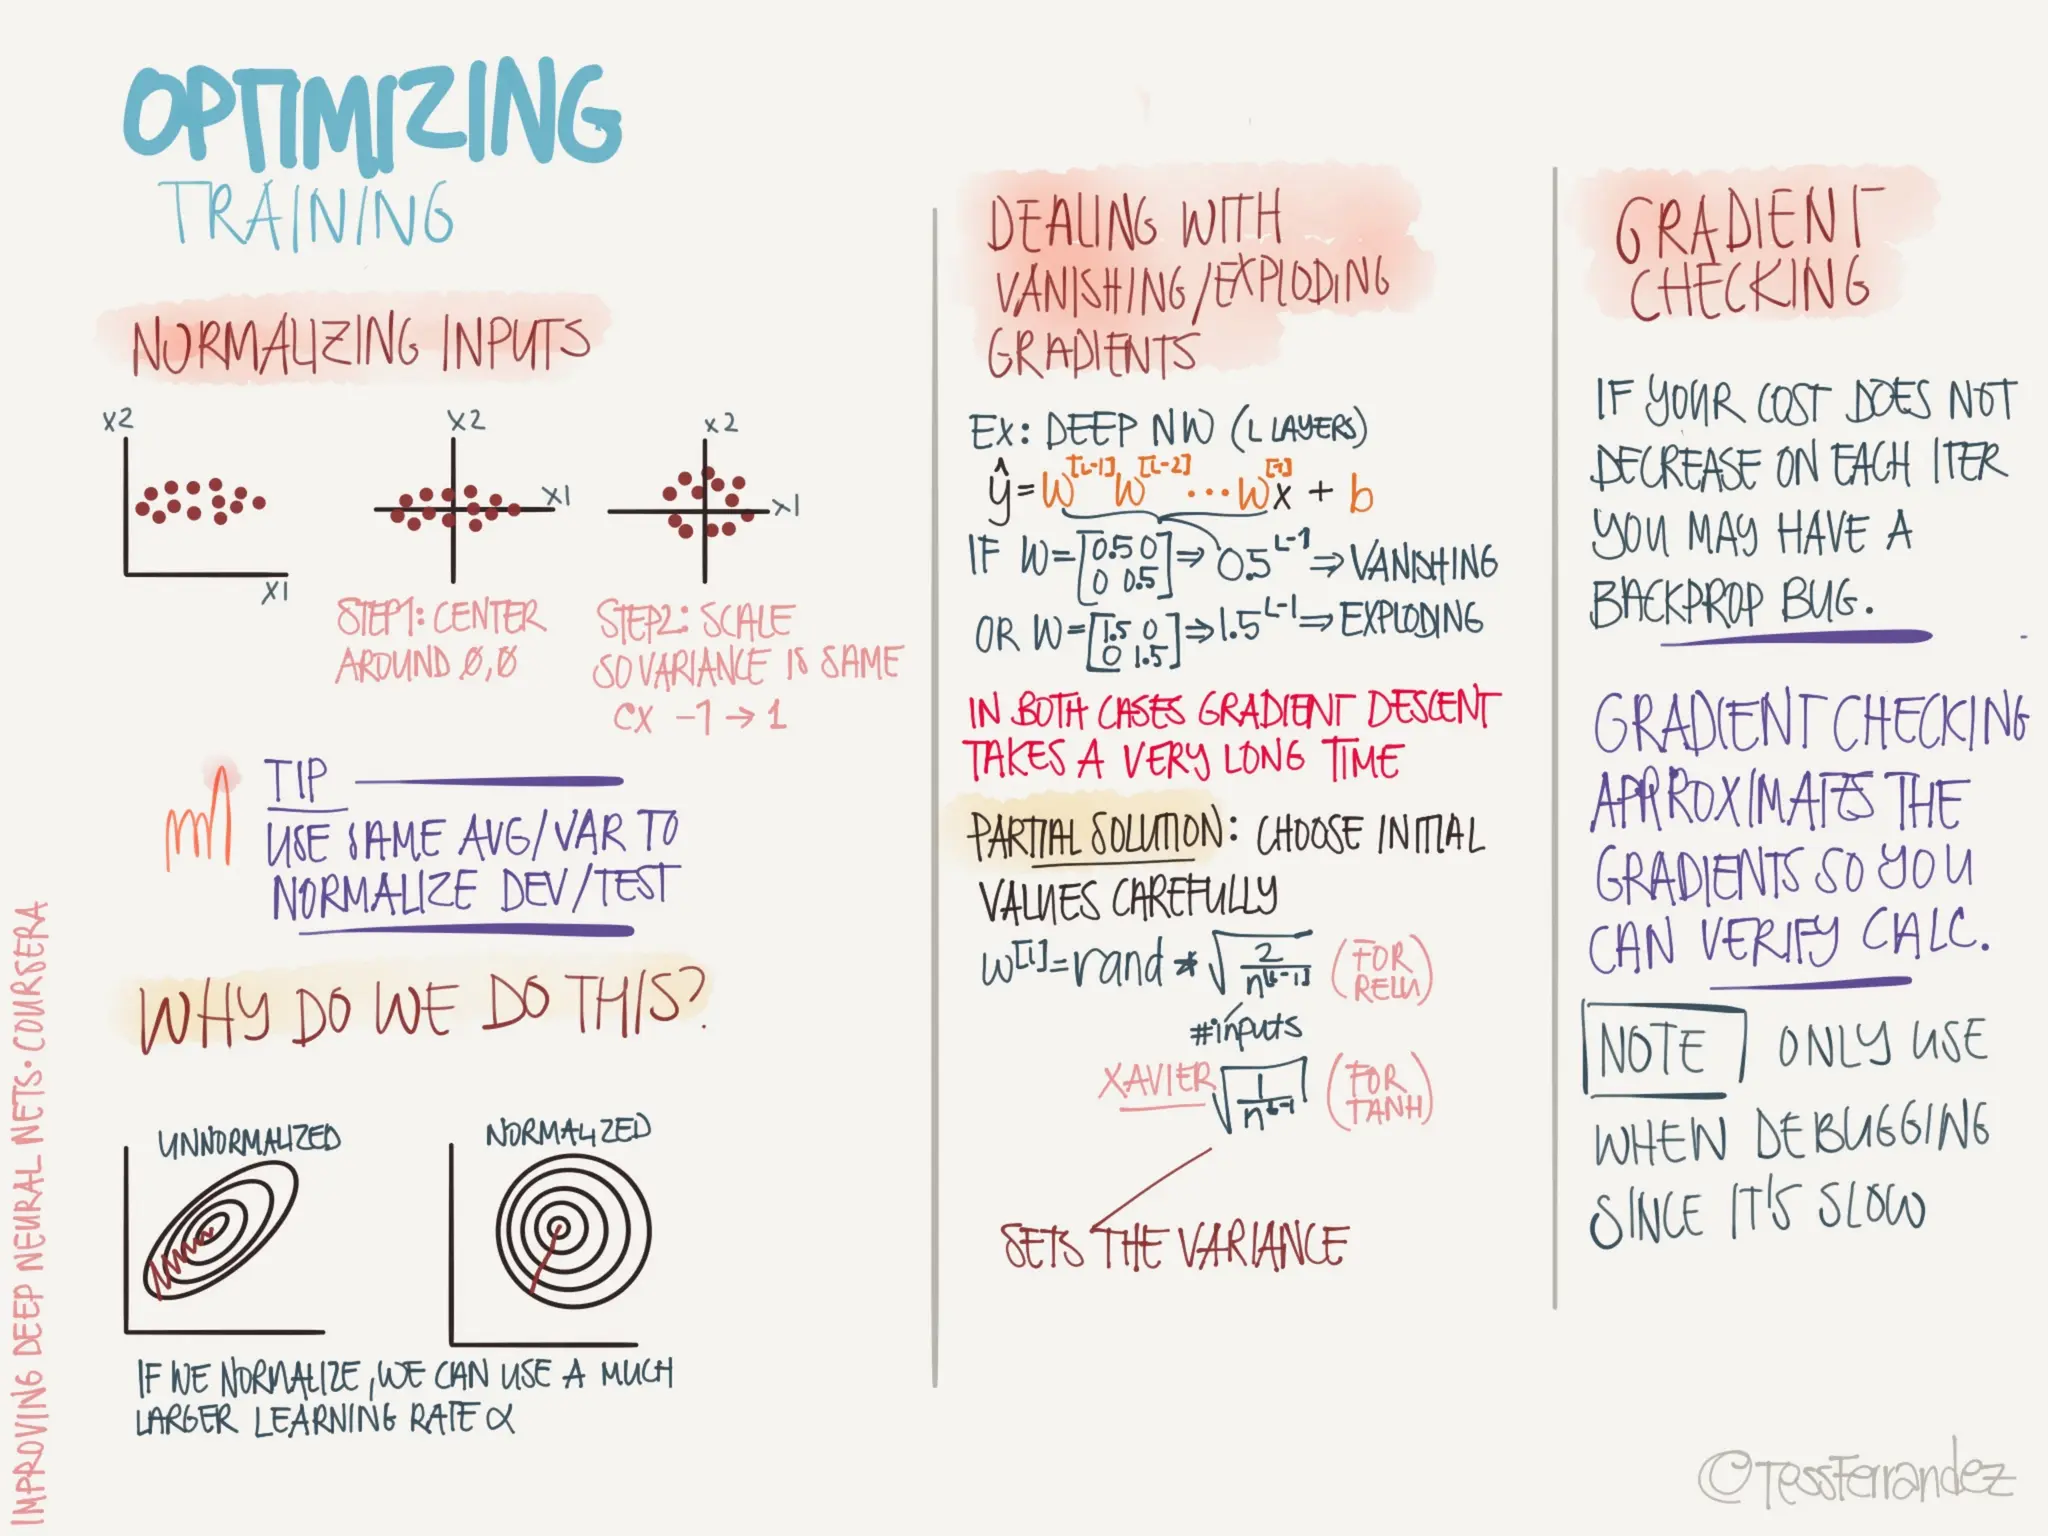 OPTIMIZING
TRAINING
NORMALIZING INPUTS
X2
X1
X2
X1
X2
X1
STEP1: CENTER
AROUND 0,0
STEP2: SCALE
SO VARIANCE IS SAME
EX -1 → 1
TIP
USE SAME AVG/VAR TO
NORMALIZE DEV/TEST
WHY DO WE DO THIS?
UNNORMALIZED
NORMALIZED
IF WE NORMALIZE, WE CAN USE A MUCH
LARGER LEARNING RATE α
DEALING WITH
VANISHING/EXPLODING
GRADIENTS
EX: DEEP NW (L LAYERS)
ŷ = W[L-1] W[L-2] ... W[1] x + b
IF W = [0.5 0
0 0.5] ⇒ 0.5^L-1 ⇒ VANISHING
OR W = [1.5 0
0 1.5] ⇒ 1.5^L-1 ⇒ EXPLODING
IN BOTH CASES GRADIENT DESCENT
TAKES A VERY LONG TIME
PARTIAL SOLUTION: CHOOSE INITIAL
VALUES CAREFULLY
W[l] = rand * √2/n[l-1] (FOR RELU)
#inputs
XAVIER √1/n^l-1 (FOR TANH)
SETS THE VARIANCE
GRADIENT
CHECKING
IF YOUR COST DOES NOT
DECREASE ON EACH ITER
YOU MAY HAVE A
BACKPROP BUG.
GRADIENT CHECKING
APPROXIMATES THE
GRADIENTS SO YOU
CAN VERIFY CALC.
NOTE ONLY USE
WHEN DEBUGGING
SINCE IT'S SLOW
IMPROVING DEEP NEURAL NETS · COURSERA
@TessFerrandez